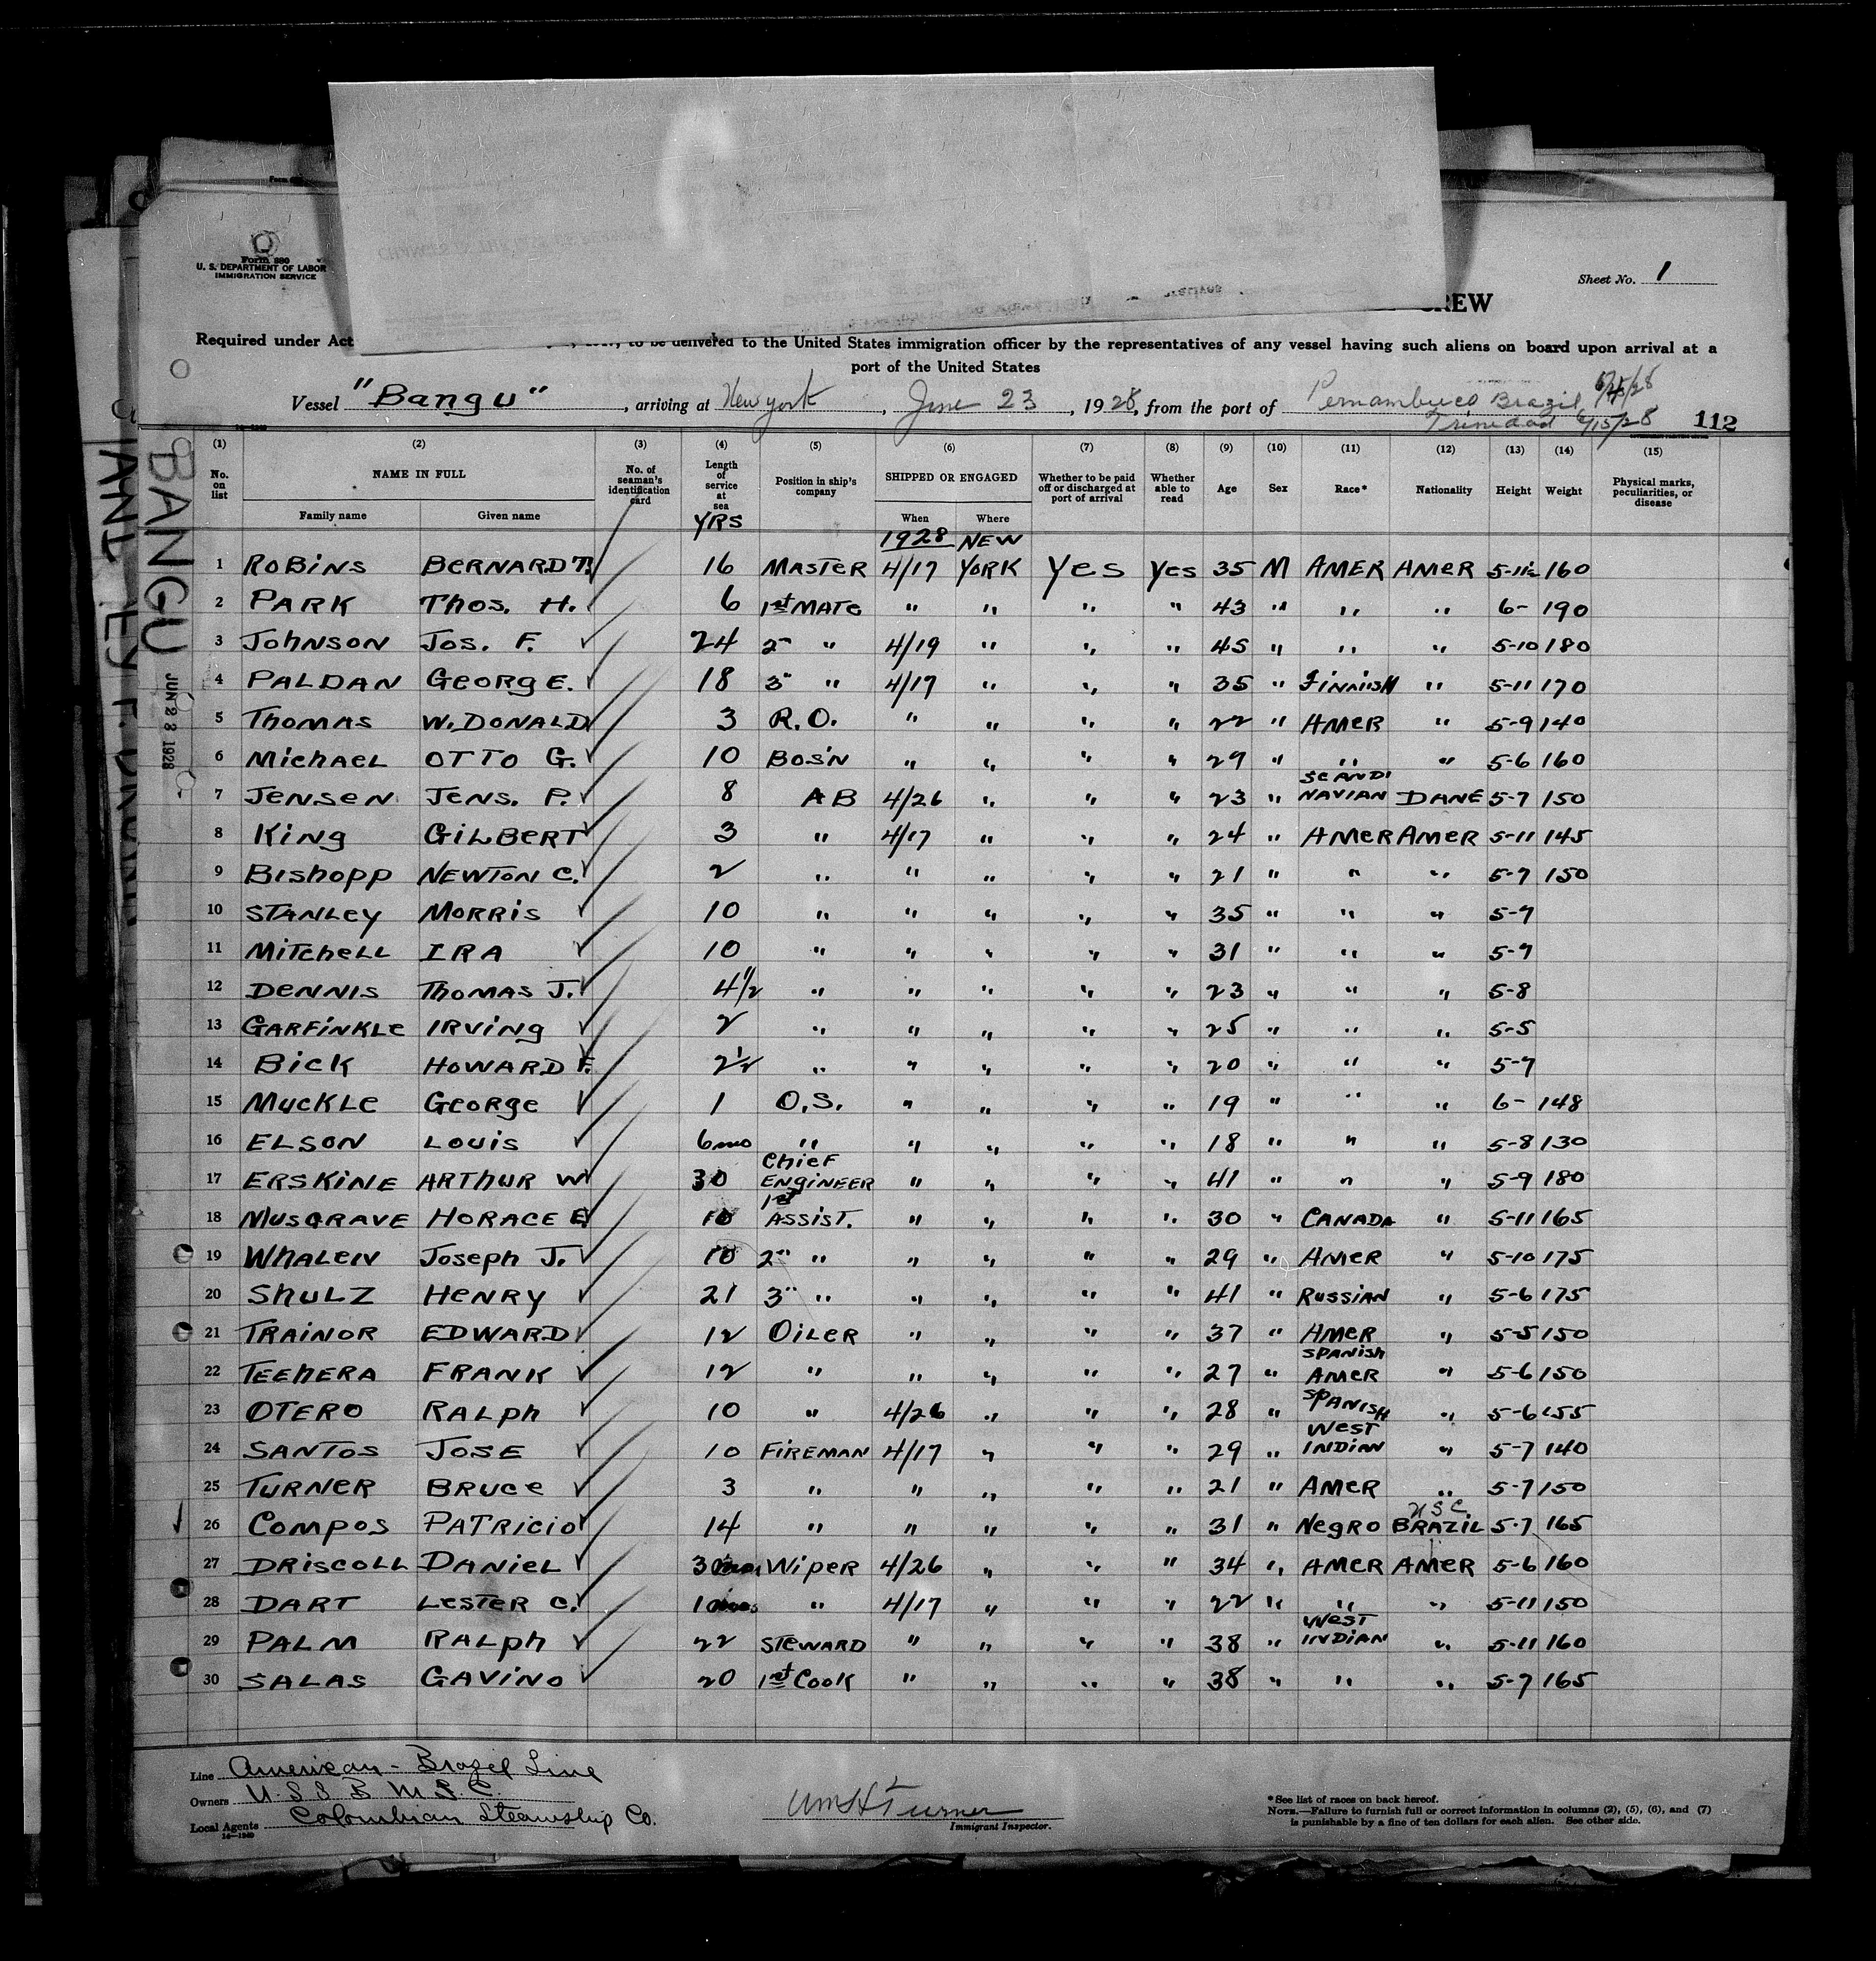 Form 680
U. S. DEPARTMENT OF LABOR
IMMIGRATION SERVICE
Sheet No. 1
CREW
Required under Act to be delivered to the United States immigration officer by the representatives of any vessel having such aliens on board upon arrival at a
port of the United States
Vessel "Bangu", arriving at New York, June 23, 1928, from the port of Pernambuco Brazil
Trinidad 6/15/28 112
BANGU JUN 23 1928
(1) (2) (3) (4) (5) (6) (7) (8) (9) (10) (11) (12) (13) (14) (15)
No. on list NAME IN FULL Family name Given name No. of seaman's identification card Length of service at sea Position in ship's company SHIPPED OR ENGAGED When Where Whether to be paid off or discharged at port of arrival Whether able to read Age Sex Race* Nationality Height Weight Physical marks, peculiarities, or disease
YRS 1928 NEW
1 ROBINS BERNARD T. 16 MASTER 4/17 YORK Yes Yes 35 M AMER AMER 5-11½ 160
2 PARK Thos. H. 6 1st MATE " " " " 43 " " " 6- 190
3 JOHNSON JOS. F. 24 2" " 4/19 " " " 45 " " " 5-10 180
4 PALDAN GEORGE. 18 3" " 4/17 " " " 35 " FINNISH " 5-11 170
5 THOMAS W. DONALD 3 R.O. " " " " 22 " AMER " 5-9 140
6 MICHAEL OTTO G. 10 BOS'N " " " " 29 " " " 5-6 160
7 JENSEN JENS. P. 8 AB 4/26 " " " 23 " SCANDI NAVIAN DANE 5-7 150
8 KING GILBERT 3 " 4/17 " " " 24 " AMER AMER 5-11 145
9 BISHOPP NEWTON C. 2 " " " " " 21 " " " 5-7 150
10 STANLEY MORRIS 10 " " " " " 35 " " " 5-7
11 MITCHELL IRA 10 " " " " " 31 " " " 5-7
12 DENNIS THOMAS J. 4½ " " " " " 23 " " " 5-8
13 GARFINKLE IRVING 2 " " " " " 25 " " " 5-5
14 BICK HOWARD F. 2½ " " " " " 20 " " " 5-7
15 MUCKLE GEORGE 1 O.S. " " " " 19 " " " 6- 148
16 ELSON LOUIS 6mo " " " " " 18 " " " 5-8 130
17 ERSKINE ARTHUR W 30 CHIEF ENGINEER " " " " 41 " " " 5-9 180
18 MUSGRAVE HORACE E 10 1st ASSIST. " " " " 30 " CANADA " 5-11 165
19 WHALEN JOSEPH J. 10 2" " " " " " 29 " AMER " 5-10 175
20 SHULZ HENRY 21 3" " " " " " 41 " RUSSIAN " 5-6 175
21 TRAINOR EDWARD 12 OILER " " " " 37 " AMER " 5-5 150
22 TEEHERA FRANK 12 " " " " " 27 " SPANISH AMER " 5-6 150
23 OTERO RALPH 10 " 4/26 " " " 28 " SPANISH " 5-6 155
24 SANTOS JOSE 10 FIREMAN 4/17 " " " 29 " WEST INDIAN " 5-7 140
25 TURNER BRUCE 3 " " " " " 21 " AMER " 5-7 150
26 COMPOS PATRICIO 14 " " " " " 31 " NEGRO USC BRAZIL 5-7 165
27 DRISCOLL DANIEL 3 WIPER 4/26 " " " 34 " AMER AMER 5-6 160
28 DART LESTER C. 1 " 4/17 " " " 22 " " " 5-11 150
29 PALM RALPH 22 STEWARD " " " " 38 " WEST INDIAN " 5-11 160
30 SALAS GAVINO 20 1st COOK " " " " 38 " " " 5-7 165
Line American - Brazil Line
Owners U.S.S.B. M.F.C.
Local Agents Colombian Steamship Co.
14-1240
Wm H Turner
Immigrant Inspector.
*See list of races on back hereof.
NOTE.—Failure to furnish full or correct information in columns (2), (5), (6), and (7)
is punishable by a fine of ten dollars for each alien. See other side.